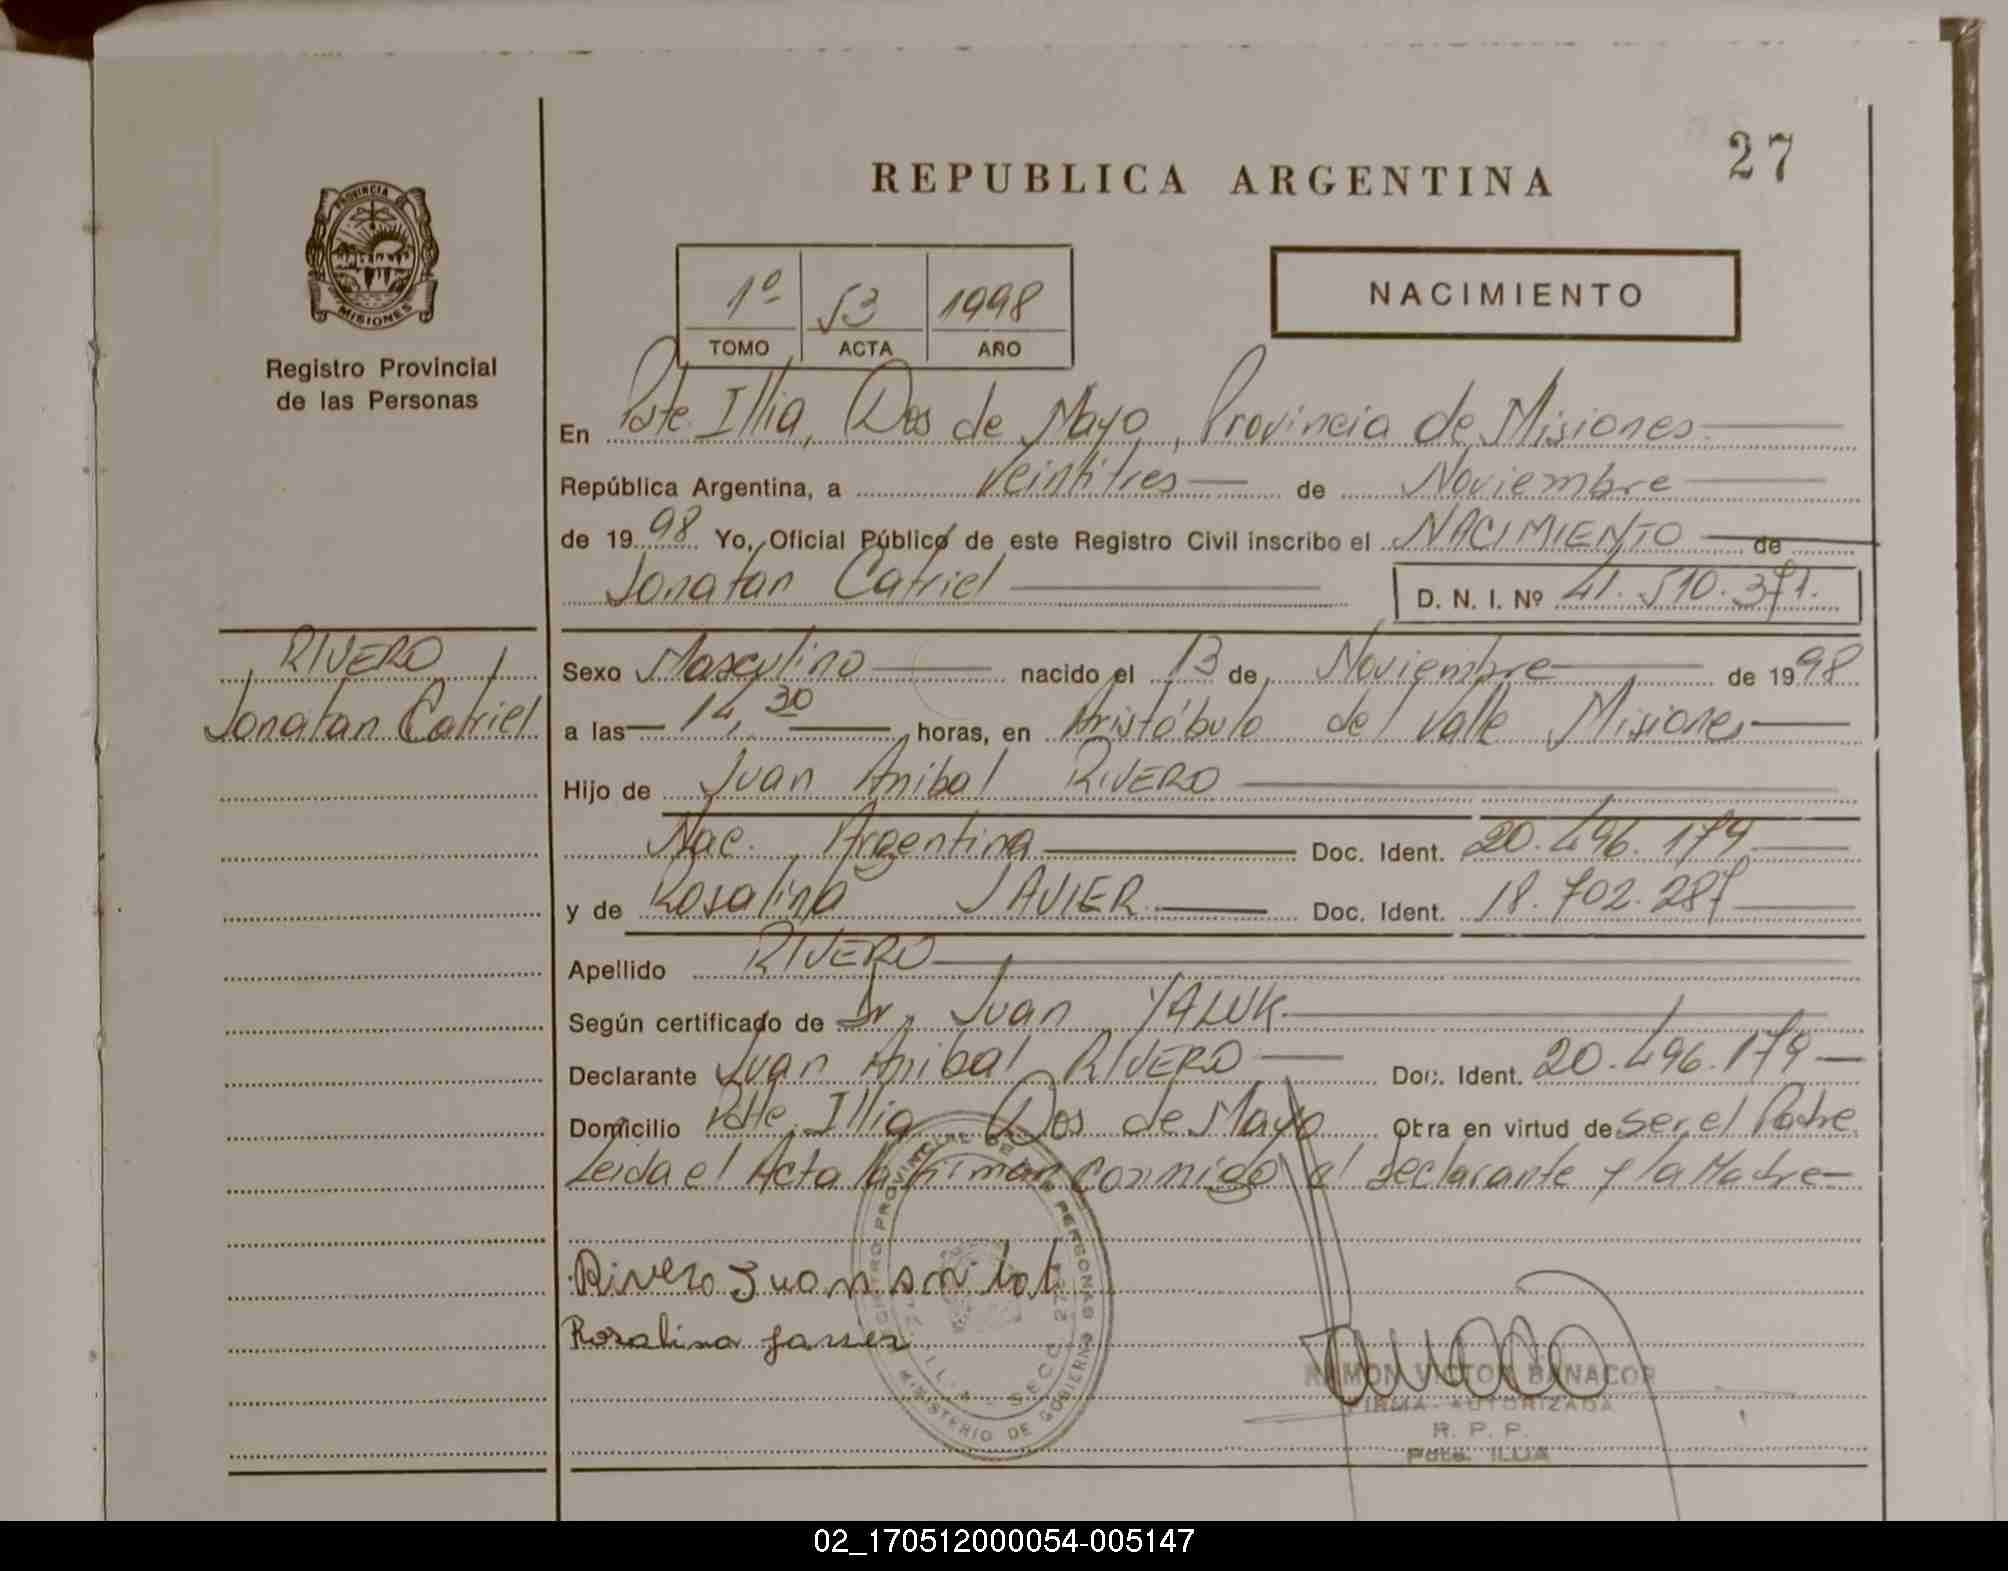 27
REPUBLICA ARGENTINA
PROVINCIA DE
MISIONES
Registro Provincial
de las Personas
NACIMIENTO
1º 53 1998
TOMO ACTA AÑO
En Pdte. Illia, Dos de Mayo, Provincia de Misiones
República Argentina, a veintitres de Noviembre
de 1998 Yo, Oficial Público de este Registro Civil inscribo el NACIMIENTO de
Jonatan Catriel D. N. I. Nº 41.510.371.
RIVERO
Jonatan Catriel
Sexo Masculino nacido el 13 de Noviembre de 1998
a las 14,30 horas, en Aristóbulo del Valle Misiones
Hijo de Juan Anibal RIVERO
Nac. Argentina Doc. Ident. 20.496.179
y de Rosalina JAVIER Doc. Ident. 18.702.287
Apellido RIVERO
Según certificado de Dr. Juan YALUK
Declarante Juan Anibal RIVERO Doc. Ident. 20.496.179
Domicilio Pdte. Illia Dos de Mayo Obra en virtud de ser el Padre
Leida el Acta la firman conmigo el declarante y la Madre
Rivero Juan anibal
Rosalina
REGISTRO PROVINCIAL DE LAS PERSONAS
MINISTERIO DE GOBIERNO
RAMON VICTOR BANACOR
FIRMA AUTORIZADA
R. P. P.
Pdte. ILLIA
02_170512000054-005147